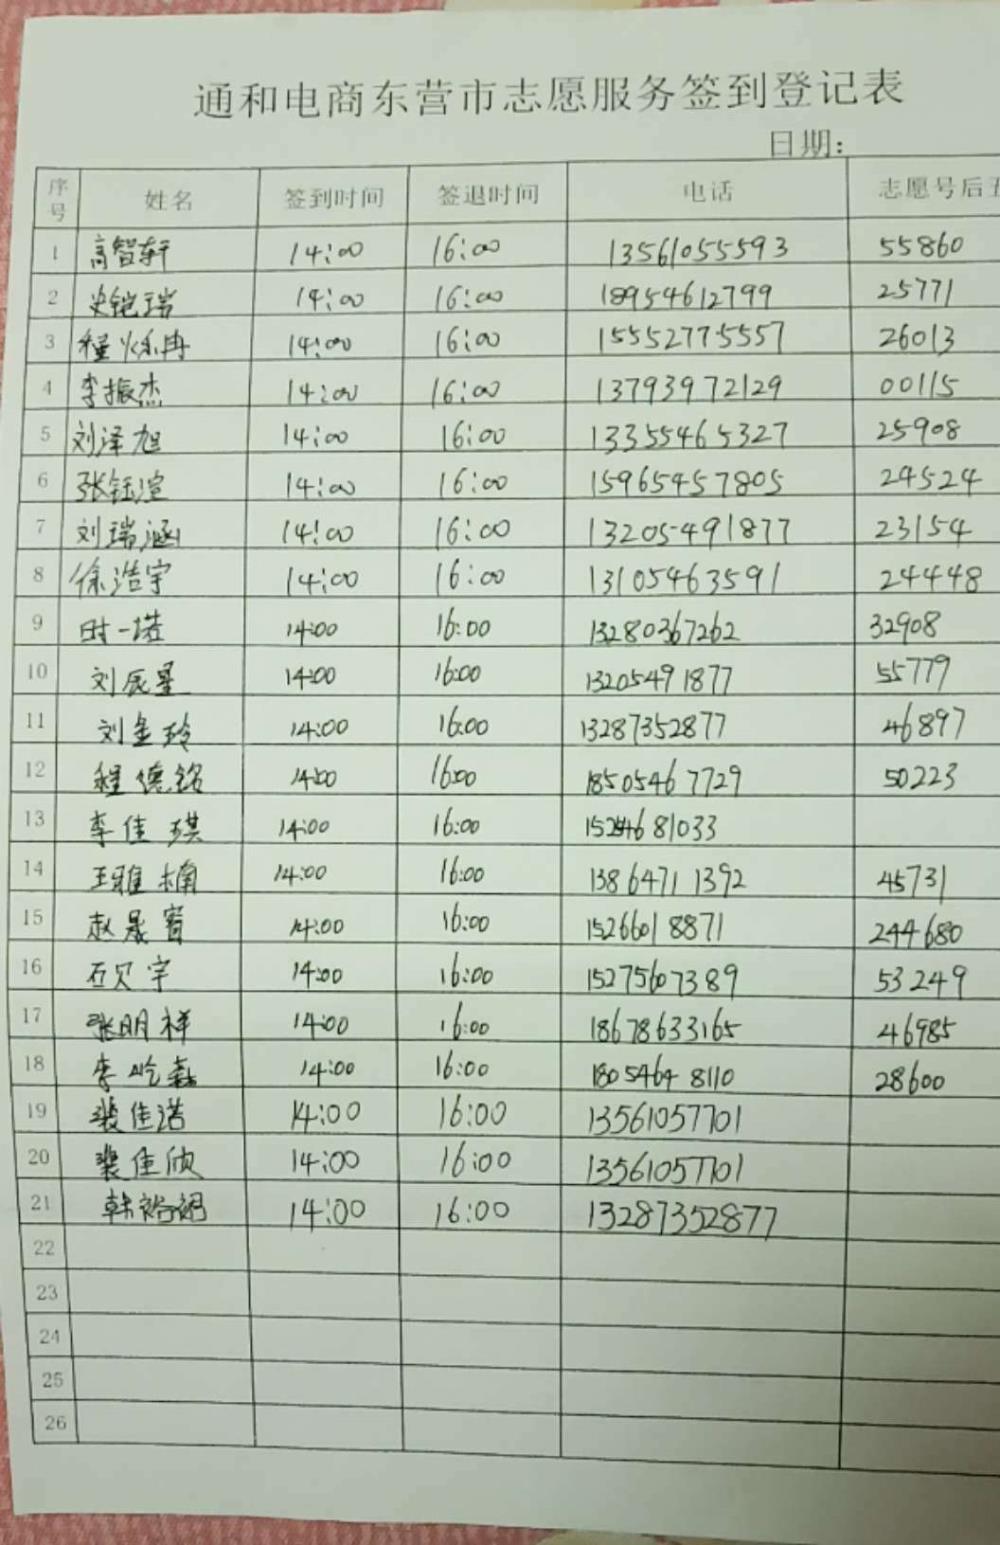 通和电商东营市志愿服务签到登记表
日期：
序号 姓名 签到时间 签退时间 电话 志愿号后五
1 高智轩 14:00 16:00 13561055593 55860
2 史铠瑞 14:00 16:00 18954612799 25771
3 程烁冉 14:00 16:00 15552775557 26013
4 李振杰 14:00 16:00 13793972129 00115
5 刘泽旭 14:00 16:00 13355465327 25908
6 张钰渲 14:00 16:00 15965457805 24524
7 刘瑞涵 14:00 16:00 13205491877 23154
8 徐浩宇 14:00 16:00 13105463591 24448
9 时一诺 14:00 16:00 13280367262 32908
10 刘辰星 14:00 16:00 13205491877 55779
11 刘金玲 14:00 16:00 13287352877 46897
12 程德铭 14:00 16:00 18505467729 50223
13 李佳琪 14:00 16:00
14 王雅楠 14:00 16:00 13864711392 45731
15 赵晟 14:00 16:00 15266018871 244680
16 石贝宇 14:00 16:00 15275607389 53249
17 张明祥 14:00 16:00 18678633165 46985
18 李屹森 14:00 16:00 18054648110 28600
19 裴佳诺 14:00 16:00 13561057701
20 裴佳欣 14:00 16:00 13561057701
21 韩 14:00 16:00 13287352877
22
23
24
25
26